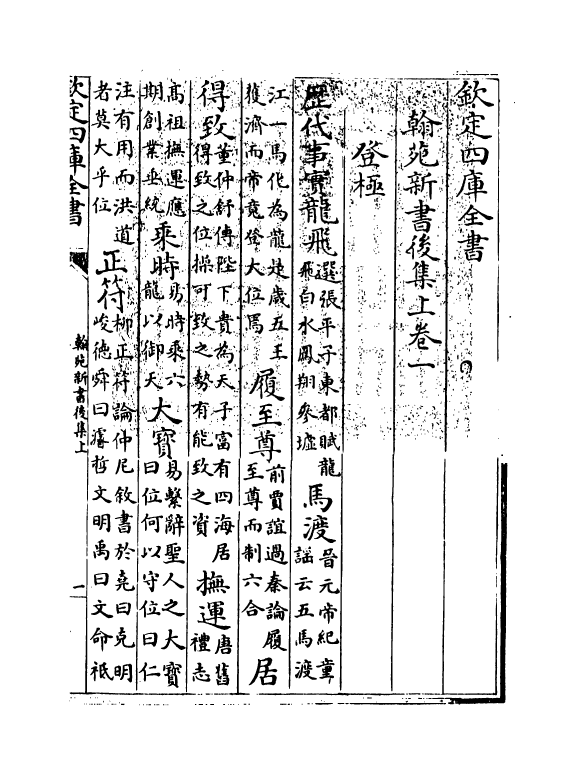 欽定四庫全書
翰苑新書後集上卷一
登極
歷代事實龍飛選張平子東都賦龍飛白水鳳翔參墟馬渡晉元帝紀童謡云五馬渡
江一馬化為龍是歲五王獲濟而帝竟登大位焉履至尊前賈誼過秦論履至尊而制六合居
得致董仲舒傳陛下貴為天子富有四海居得致之位操可致之勢有能致之資撫運唐舊禮志
髙祖撫運應期創業垂統乘時易時乘六龍以御天大寶易繫辭聖人之大寶曰位何以守位曰仁
注有用而洪道者莫大乎位正符柳正符論仲尼敘書於堯曰克明峻德舜曰濬哲文明禹曰文命祗
欽定四庫全書
翰苑新書後集上
一